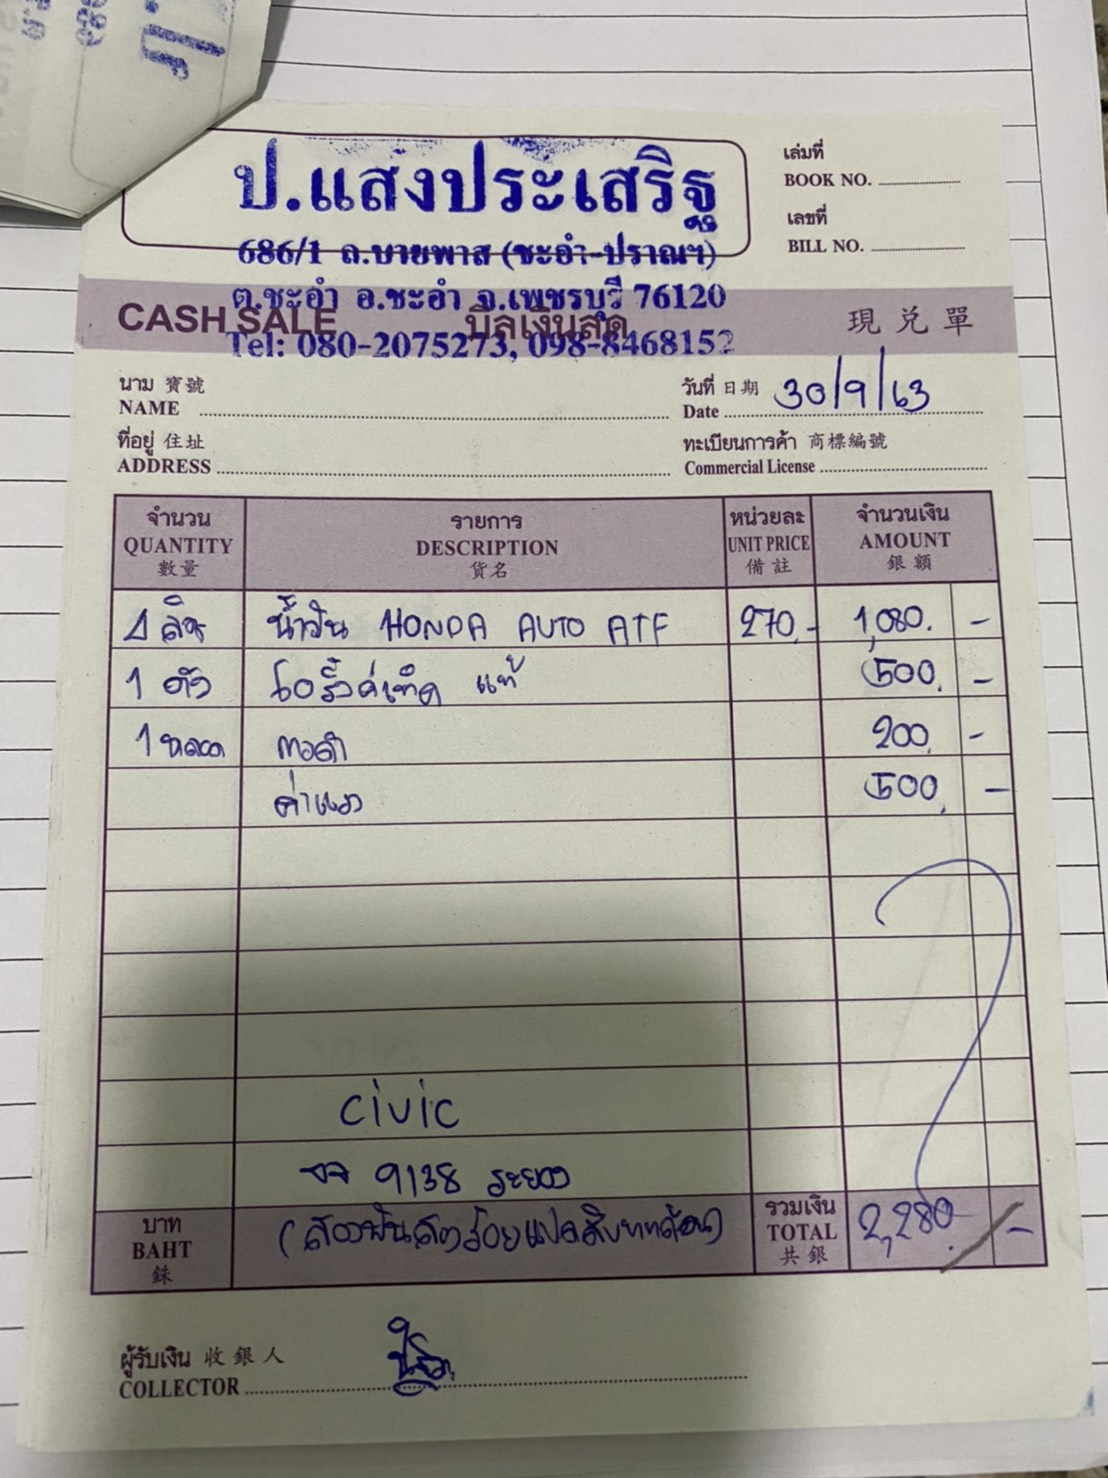 ป.แสงประเสริฐ
686/1 ถ.บายพาส (ชะอำ-ปราณฯ)
ต.ชะอำ อ.ชะอำ จ.เพชรบุรี 76120
Tel: 080-2075273, 098-8468152
เล่มที่
BOOK NO.
เลขที่
BILL NO.
CASH SALE บิลเงินสด 現兌單
นาม 寶號
NAME
วันที่ 日期
Date 30/9/63
ที่อยู่ 住址
ADDRESS
ทะเบียนการค้า 商標編號
Commercial License
จำนวน รายการ หน่วยละ จำนวนเงิน
QUANTITY DESCRIPTION UNIT PRICE AMOUNT
數量 貨名 備註 銀額
4 ลิตร น้ำมัน HONDA AUTO ATF 270.- 1,080.-
1 ตัว โอริ้ง แท้ 500.-
1 หลอด กาวดำ 200.-
ค่าแรง 500.-
civic
9138 ระยอง
บาท
BAHT
銖
(สองพันสองร้อยแปดสิบบาทถ้วน)
รวมเงิน
TOTAL
共銀
2,280.-
ผู้รับเงิน 收銀人
COLLECTOR